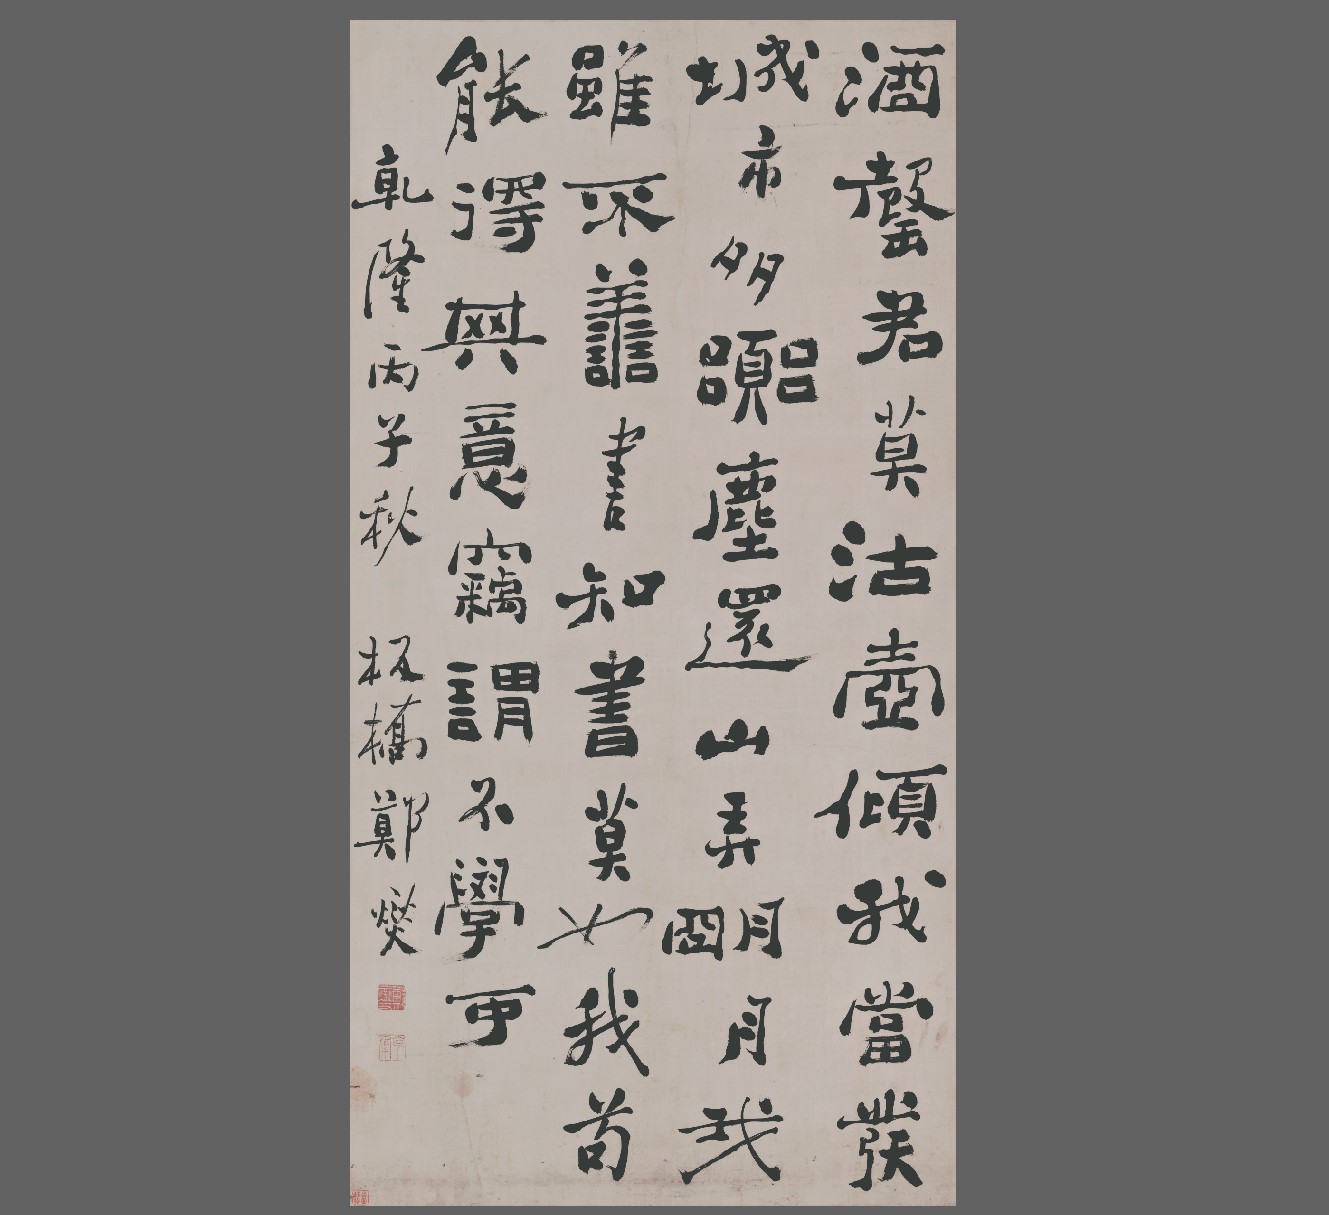 酒罄君莫沽壺傾我當發
城市多囂塵還山弄朙月我
雖不善書知書莫如我苟
能得其意竊謂不學可
乾隆丙子秋 板橋鄭燮